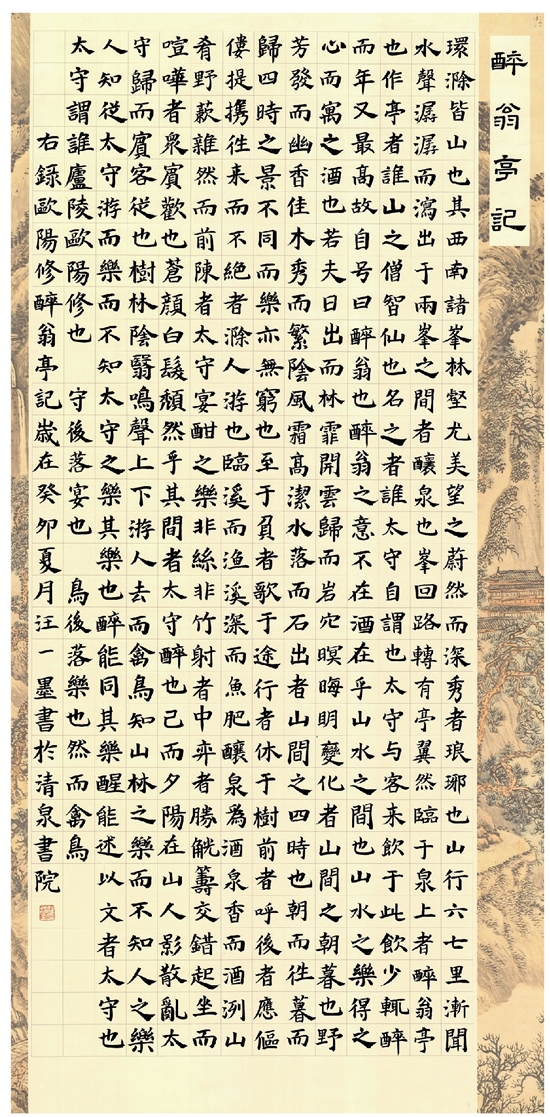 醉翁亭記
環滁皆山也其西南諸峯林壑尤美望之蔚然而深秀者琅琊也山行六七里漸聞
水聲潺潺而瀉出于兩峯之間者釀泉也峯回路轉有亭翼然臨于泉上者醉翁亭
也作亭者誰山之僧智仙也名之者誰太守自謂也太守与客来飲于此飲少輒醉
而年又最高故自号曰醉翁也醉翁之意不在酒在乎山水之間也山水之樂得之
心而寓之酒也若夫日出而林霏開雲歸而岩穴暝晦明變化者山間之朝暮也野
芳發而幽香佳木秀而繁陰風霜高潔水落而石出者山間之四時也朝而往暮而
歸四時之景不同而樂亦無窮也至于負者歌于途行者休于樹前者呼後者應傴
僂提携往来而不絶者滁人游也臨溪而渔溪深而魚肥釀泉為酒泉香而酒洌山
肴野蔌雜然而前陳者太守宴酣之樂非絲非竹射者中弈者勝觥籌交錯起坐而
喧嘩者衆賓歡也蒼顔白髮頹然乎其間者太守醉也已而夕陽在山人影散亂太
守歸而賓客從也樹林陰翳鳴聲上下游人去而禽鳥知山林之樂而不知人之樂
人知從太守游而樂而不知太守之樂其樂也醉能同其樂醒能述以文者太守也
太守謂誰廬陵歐陽修也 守後落宴也 鳥後落樂也然而禽鳥
右錄歐陽修醉翁亭記歲在癸卯夏月汪一墨書於清泉書院